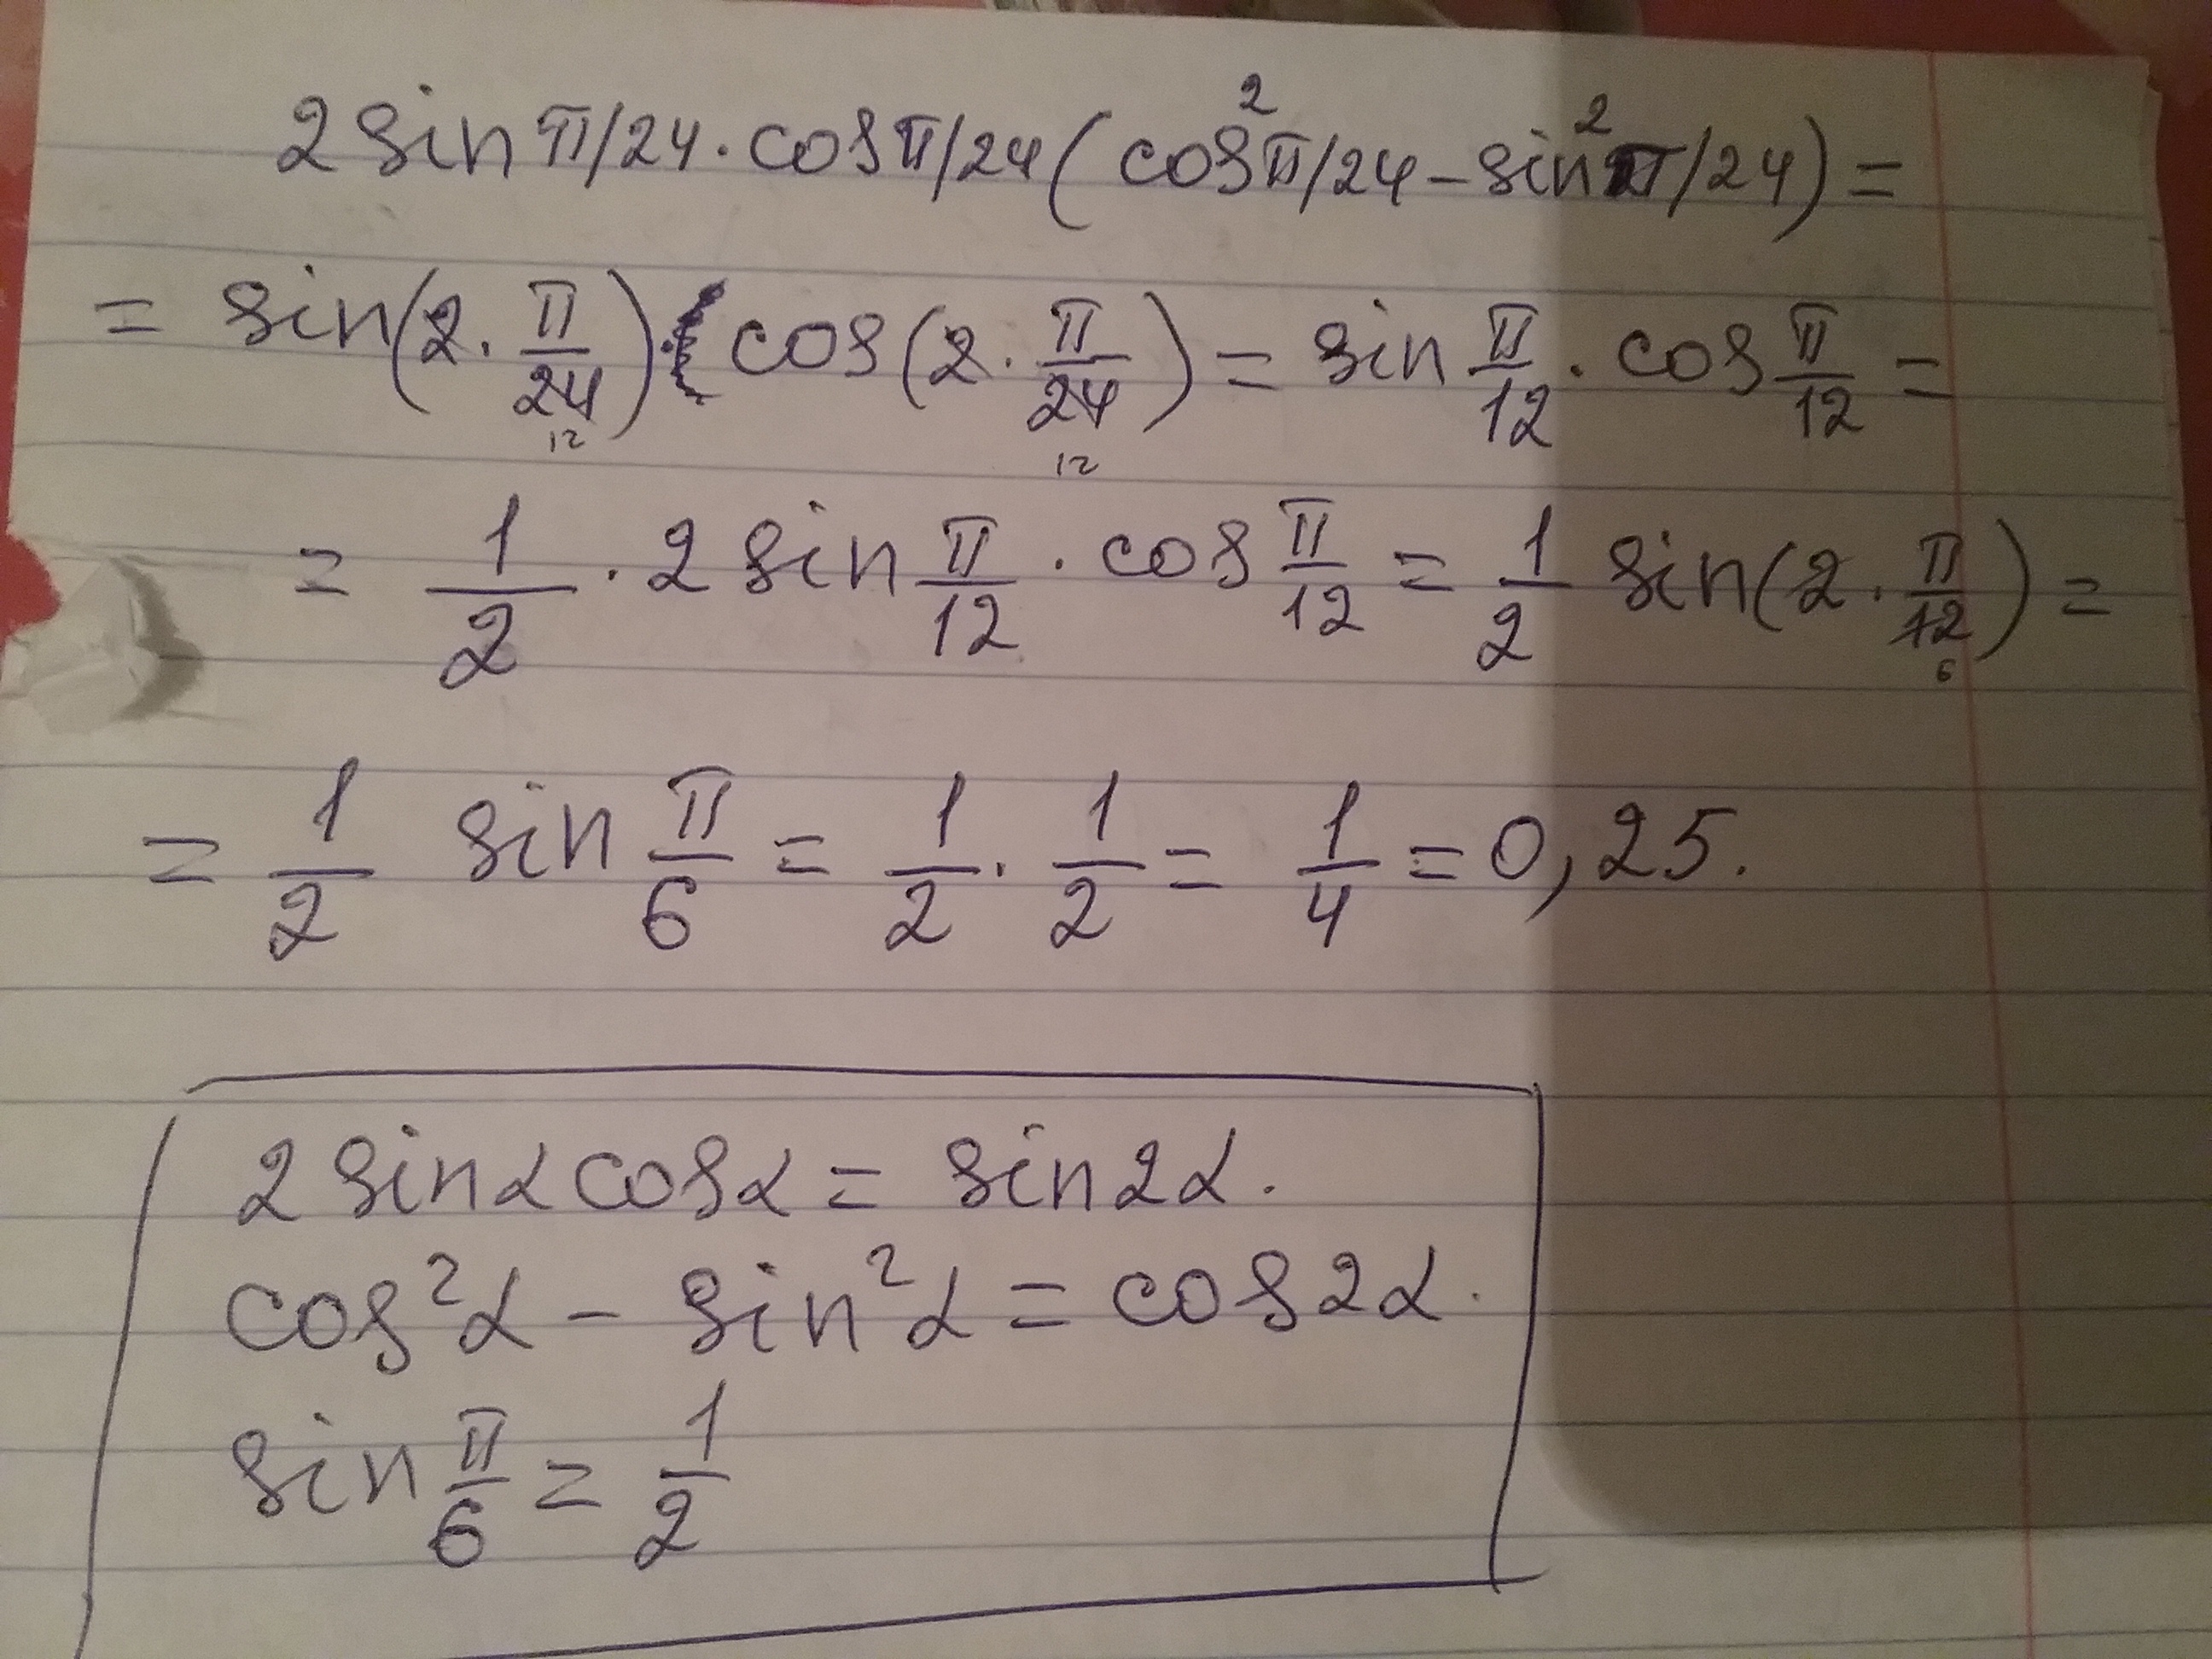 2 sin π/24 · cos π/24 ( cos² π/24 – sin² π/24 ) =
= sin(2 · π/24 12) · cos(2 · π/24 12) = sin π/12 · cos π/12 =
= 1/2 · 2 sin π/12 · cos π/12 = 1/2 sin(2 · π/12 6) =
= 1/2 sin π/6 = 1/2 · 1/2 = 1/4 = 0,25.
2 sin α cos α = sin 2α.
cos² α – sin² α = cos 2α.
sin π/6 = 1/2